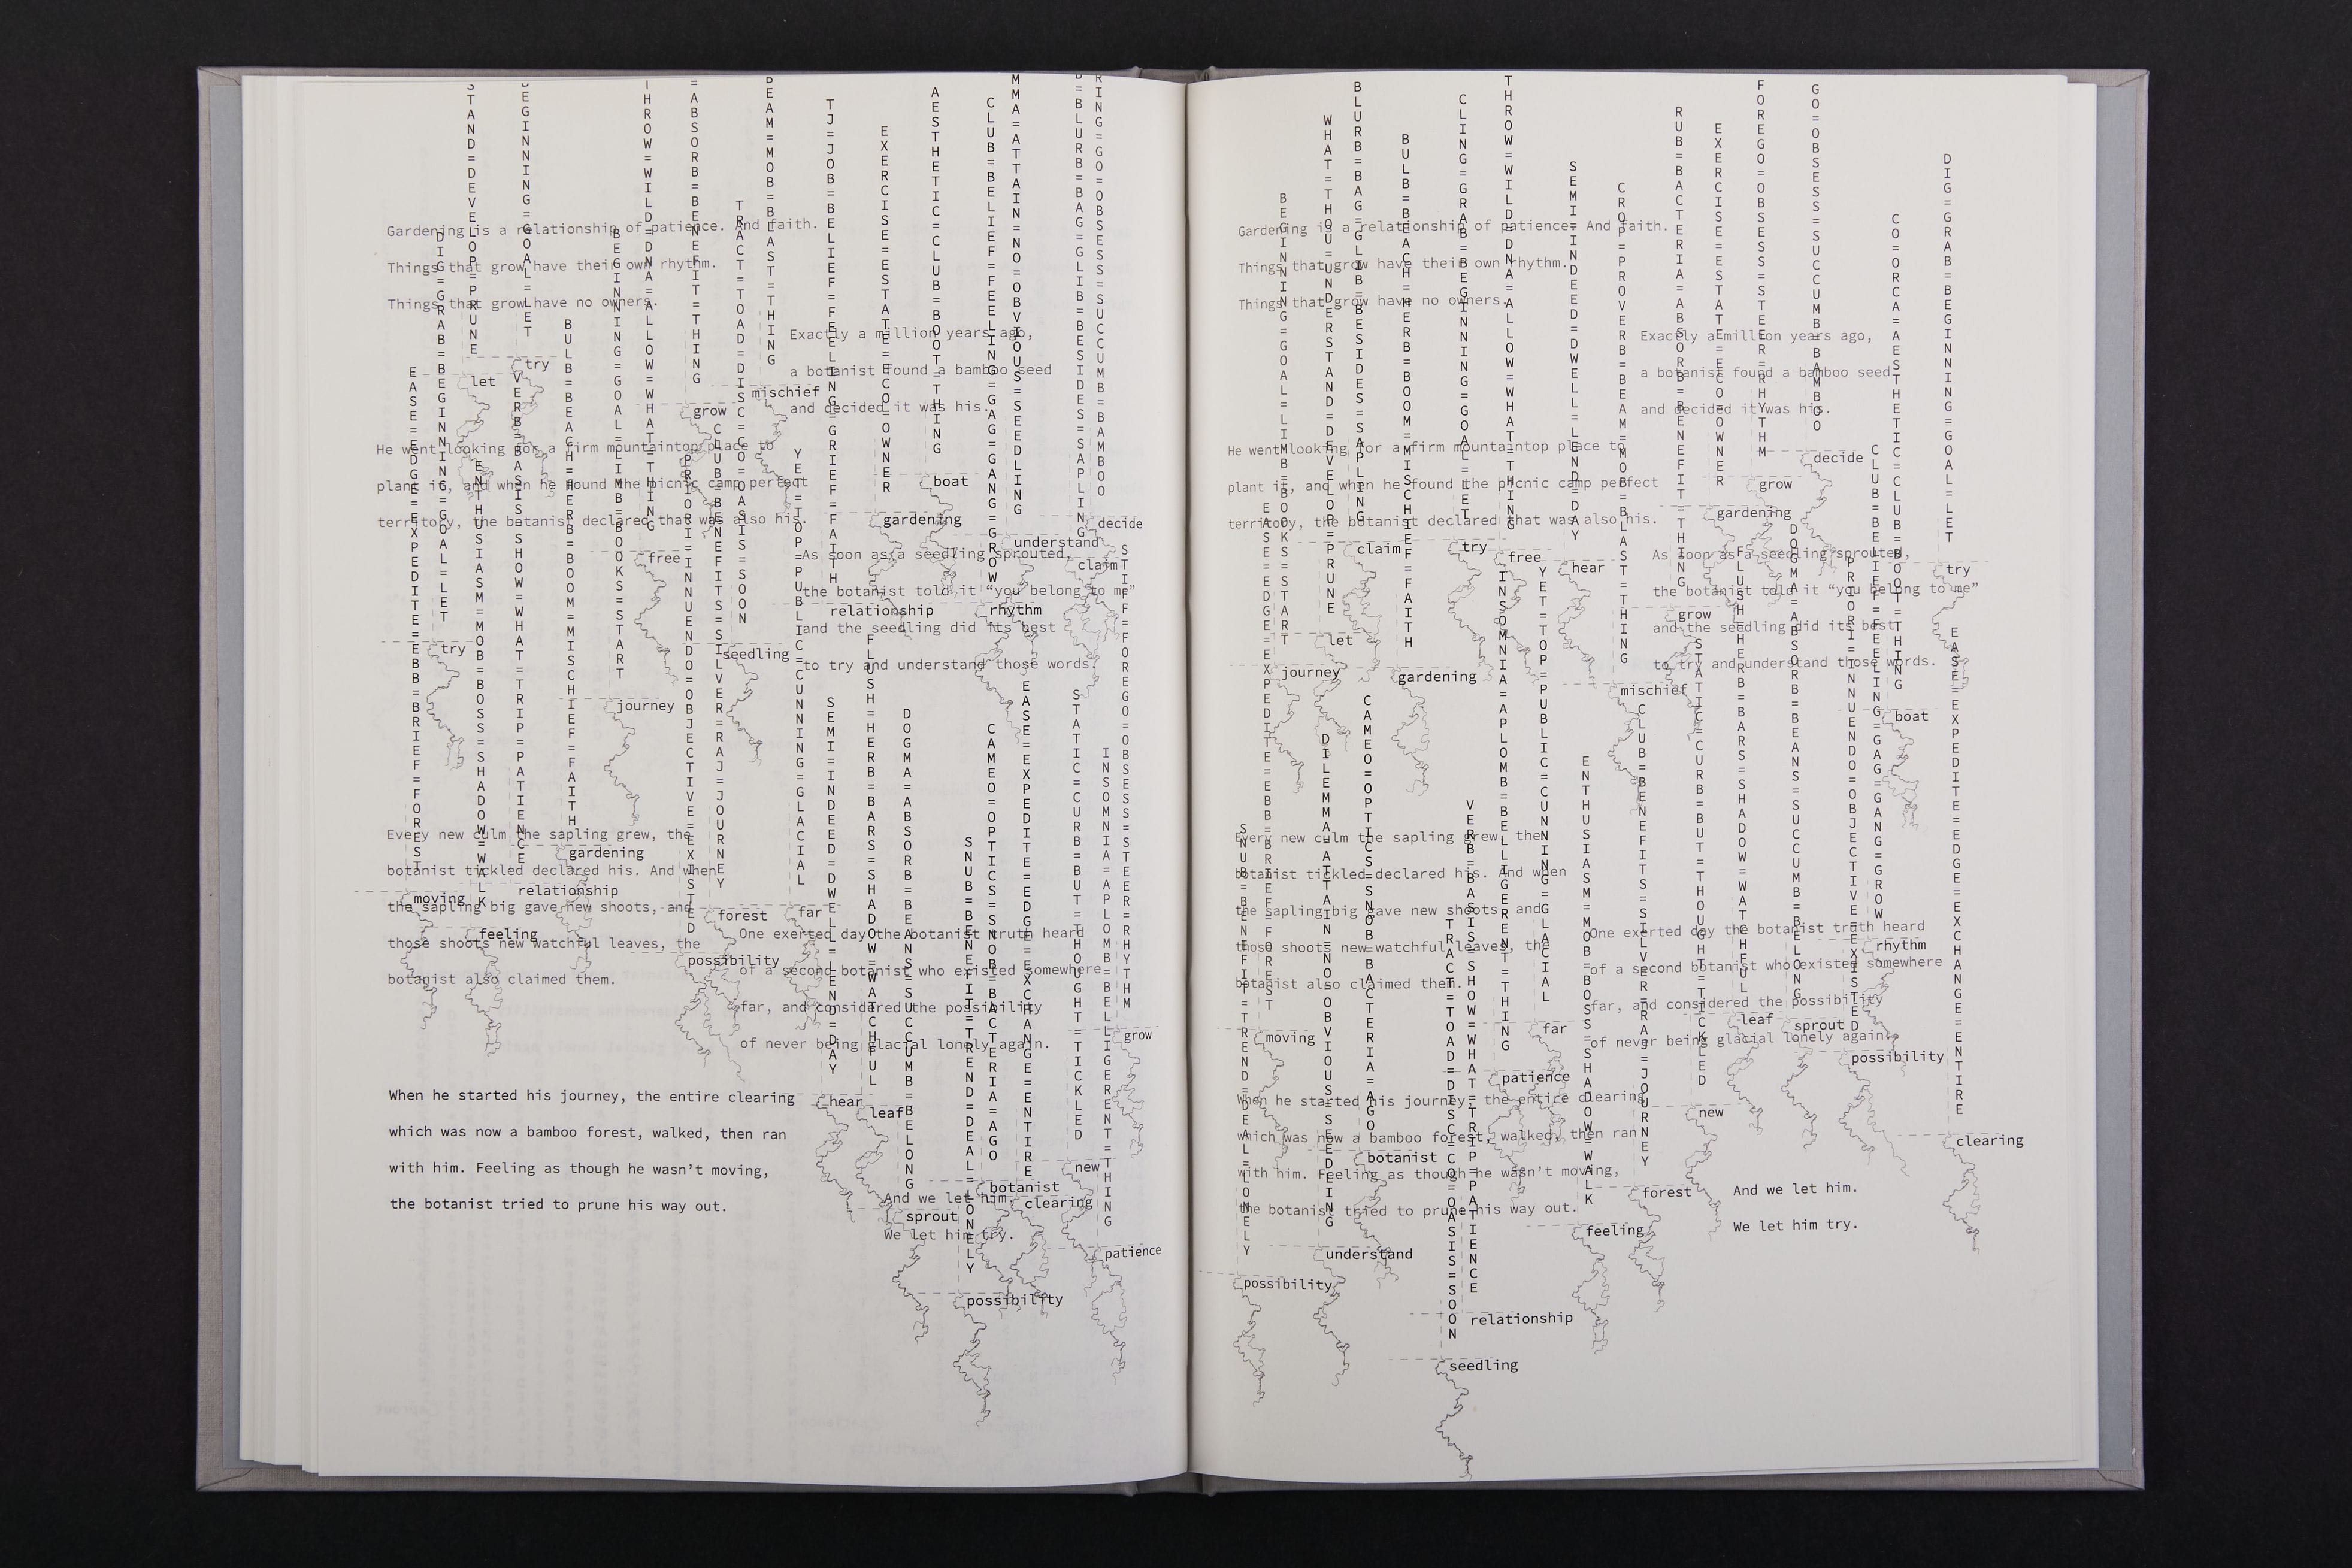 Gardening is a relationship of patience. And faith.
Things that grow have their own rhythm.
Things that grow have no owners.
Exactly a million years ago,
a botanist found a bamboo seed
and decided it was his.
He went looking for a firm mountaintop place to
plant it, and when he found the picnic camp perfect
territory, the botanist declared that was also his.
As soon as a seedling sprouted,
the botanist told it “you belong to me”
and the seedling did its best
to try and understand those words.
Every new culm the sapling grew, the
botanist tickled declared his. And when
the sapling big gave new shoots, and
those shoots new watchful leaves, the
botanist also claimed them.
One exerted day the botanist truth heard
of a second botanist who existed somewhere
far, and considered the possibility
of never being glacial lonely again.
When he started his journey, the entire clearing
which was now a bamboo forest, walked, then ran
with him. Feeling as though he wasn’t moving,
the botanist tried to prune his way out.
And we let him.
We let him try.
EASE=EDGE=EXPEDITE=EBB=BRIEF=FOREST
moving
DIG=GRAB=BEGINNING=GOAL=LET
try
STAND=DEVELOP=PRUNE
let
ENTHUSIASM=MOB=BOSS=SHADOW=WALK
feeling
BEGINNING=GOAL=LET
try
VERB=BASIS=SHOW=WHAT=TRIP=PATIENCE
relationship
BULB=BEACH=HERB=BOOM=MISCHIEF=FAITH
gardening
BEGINNING=GOAL=LIMB=BOOKS=START
journey
THROW=WILD=DNA=ALLOW=WHAT=THING
free
=ABSORB=BENEFIT=THING
grow
PRIORI=INNUENDO=OBJECTIVE=EXISTED
possibility
CLUB=BENEFITS=SILVER=RAJ=JOURNEY
forest
TRACT=TOAD=DISC=CO=OASIS=SOON
seedling
BEAM=MOB=BLAST=THING
mischief
YET=TOP=PUBLIC=CUNNING=GLACIAL
far
TJ=JOB=BELIEF=FEELING=GRIEF=FAITH
relationship
SEMI=INDEED=DWELL=LEND=DAY
hear
FLUSH=HERB=BARS=SHADOW=WATCHFUL
leaf
EXERCISE=ESTATE=ECO=OWNER
gardening
DOGMA=ABSORB=BEANS=SUCCUMB=BELONG
sprout
AESTHETIC=CLUB=BOOT=THING
boat
SNUB=BENEFIT=TREND=DEAL=LONELY
possibility
CLUB=BELIEF=FEELING=GAG=GANG=GROW
rhythm
CAMEO=OPTICS=SNOB=BACTERIA=AGO
botanist
MMA=ATTAIN=NO=OBVIOUS=SEEDLING
understand
EASE=EXPEDITE=EDGE=EXCHANGE=ENTIRE
clearing
B=BLURB=BAG=GLIB=BESIDES=SAPLING
claim
STATIC=CURB=BUT=THOUGHT=TICKLED
new
RING=GO=OBSESS=SUCCUMB=BAMBOO
decide
INSOMNIA=APLOMB=BELLIGERENT=THING
patience
STIFF=FOREGO=OBSESS=STEER=RHYTHM
grow
Gardening is a relationship of patience. And faith.
Things that grow have their own rhythm.
Things that grow have no owners.
Exactly a million years ago,
a botanist found a bamboo seed
and decided it was his.
He went looking for a firm mountaintop place to
plant it, and when he found the picnic camp perfect
territory, the botanist declared that was also his.
As soon as a seedling sprouted,
the botanist told it “you belong to me”
and the seedling did its best
to try and understand those words.
Every new culm the sapling grew, the
botanist tickled declared his. And when
the sapling big gave new shoots, and
those shoots new watchful leaves, the
botanist also claimed them.
One exerted day the botanist truth heard
of a second botanist who existed somewhere
far, and considered the possibility
of never being glacial lonely again.
When he started his journey, the entire clearing
which was now a bamboo forest, walked, then ran
with him. Feeling as though he wasn’t moving,
the botanist tried to prune his way out.
And we let him.
We let him try.
SNUB=BENEFIT=TREND=DEAL=LONELY
possibility
EASE=EDGE=EXPEDITE=EBB=BRIEF=FOREST
moving
BEGINNING=GOAL=LIMB=BOOKS=START
journey
WHAT=THOU=UNDERSTAND=DEVELOP=PRUNE
let
DILEMMA=ATTAIN=NO=OBVIOUS=SEEDLING
understand
BLURB=BAG=GLIB=BESIDES=SAPLING
claim
CAMEO=OPTICS=SNOB=BACTERIA=AGO
botanist
BULB=BEACH=HERB=BOOM=MISCHIEF=FAITH
gardening
TRACT=TOAD=DISC=CO=OASIS=SOON
seedling
CLING=GRAB=BEGINNING=GOAL=LET
try
VERB=BASIS=SHOW=WHAT=TRIP=PATIENCE
relationship
THROW=WILD=DNA=ALLOW=WHAT=THING
free
INSOMNIA=APLOMB=BELLIGERENT=THING
patience
YET=TOP=PUBLIC=CUNNING=GLACIAL
far
SEMI=INDEED=DWELL=LEND=DAY
hear
ENTHUSIASM=MOB=BOSS=SHADOW=WALK
feeling
CROP=PROVERB=BEAM=MOB=BLAST=THING
mischief
CLUB=BENEFITS=SILVER=RAJ=JOURNEY
forest
RUB=BACTERIA=ABSORB=BENEFIT=THING
grow
STATIC=CURB=BUT=THOUGHT=TICKLED
new
EXERCISE=ESTATE=ECO=OWNER
gardening
FLUSH=HERB=BARS=SHADOW=WATCHFUL
leaf
FOREGO=OBSESS=STEER=RHYTHM
grow
DOGMA=ABSORB=BEANS=SUCCUMB=BELONG
sprout
GO=OBSESS=SUCCUMB=BAMBOO
decide
PRIORI=INNUENDO=OBJECTIVE=EXISTED
possibility
CLUB=BELIEF=FEELING=GAG=GANG=GROW
rhythm
CO=ORCA=AESTHETIC=CLUB=BOOT=THING
boat
DIG=GRAB=BEGINNING=GOAL=LET
try
EASE=EXPEDITE=EDGE=EXCHANGE=ENTIRE
clearing